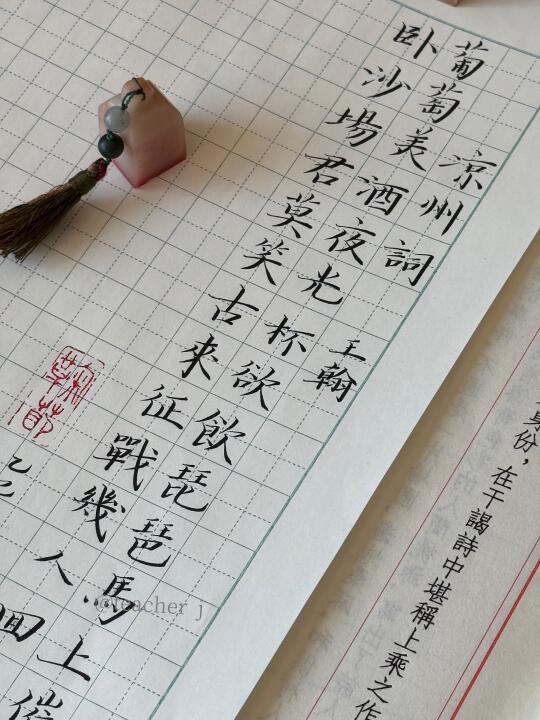 身份，在干謁詩中堪稱上乘之作
涼州詞 王翰
葡萄美酒夜光杯欲飲琵琶馬上催
卧沙場君莫笑古來征戰幾人回
@teacher j